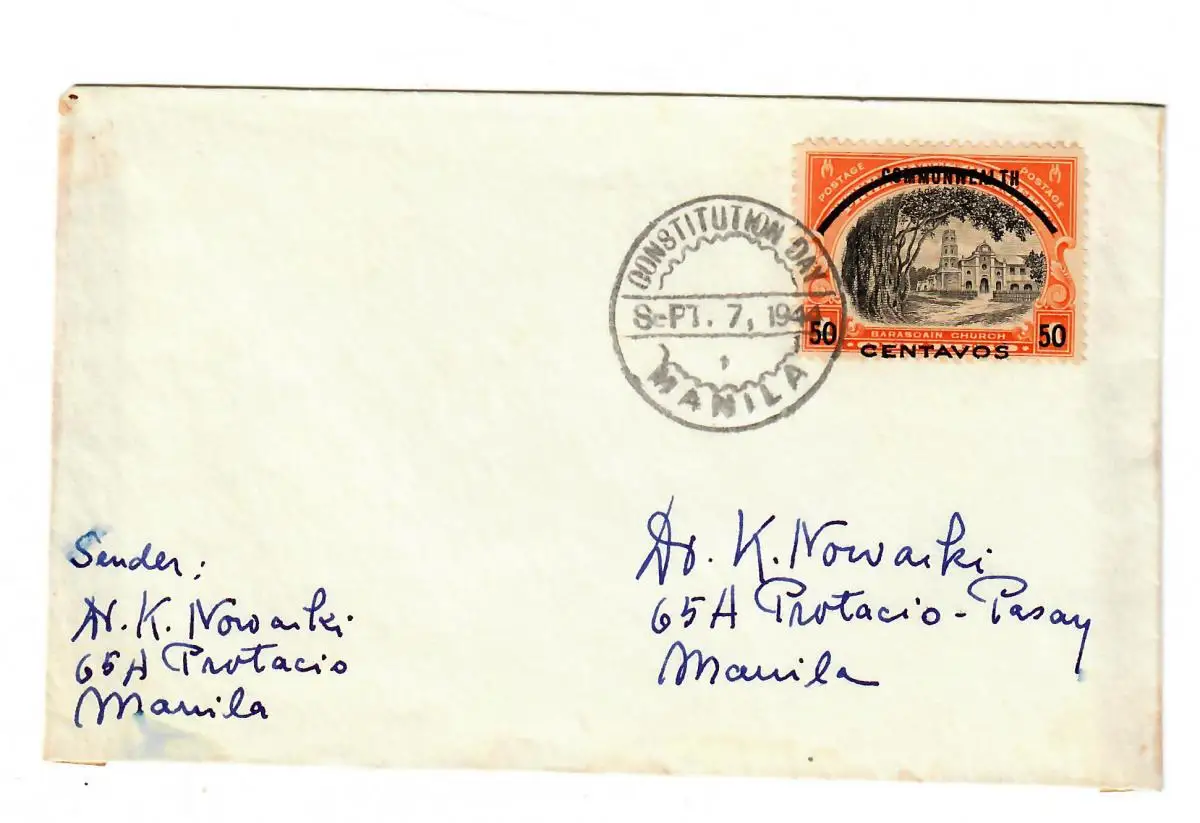 POSTAGE COMMONWEALTH POSTAGE
CONSTITUTION DAY
SEPT. 7, 1944
1
MANILA
50 BARASOAIN CHURCH 50
CENTAVOS
Sender:
Dr. K. Nowaiki
65A Protacio
Manila
Dr. K. Nowaiki
65A Protacio - Pasay
Manila